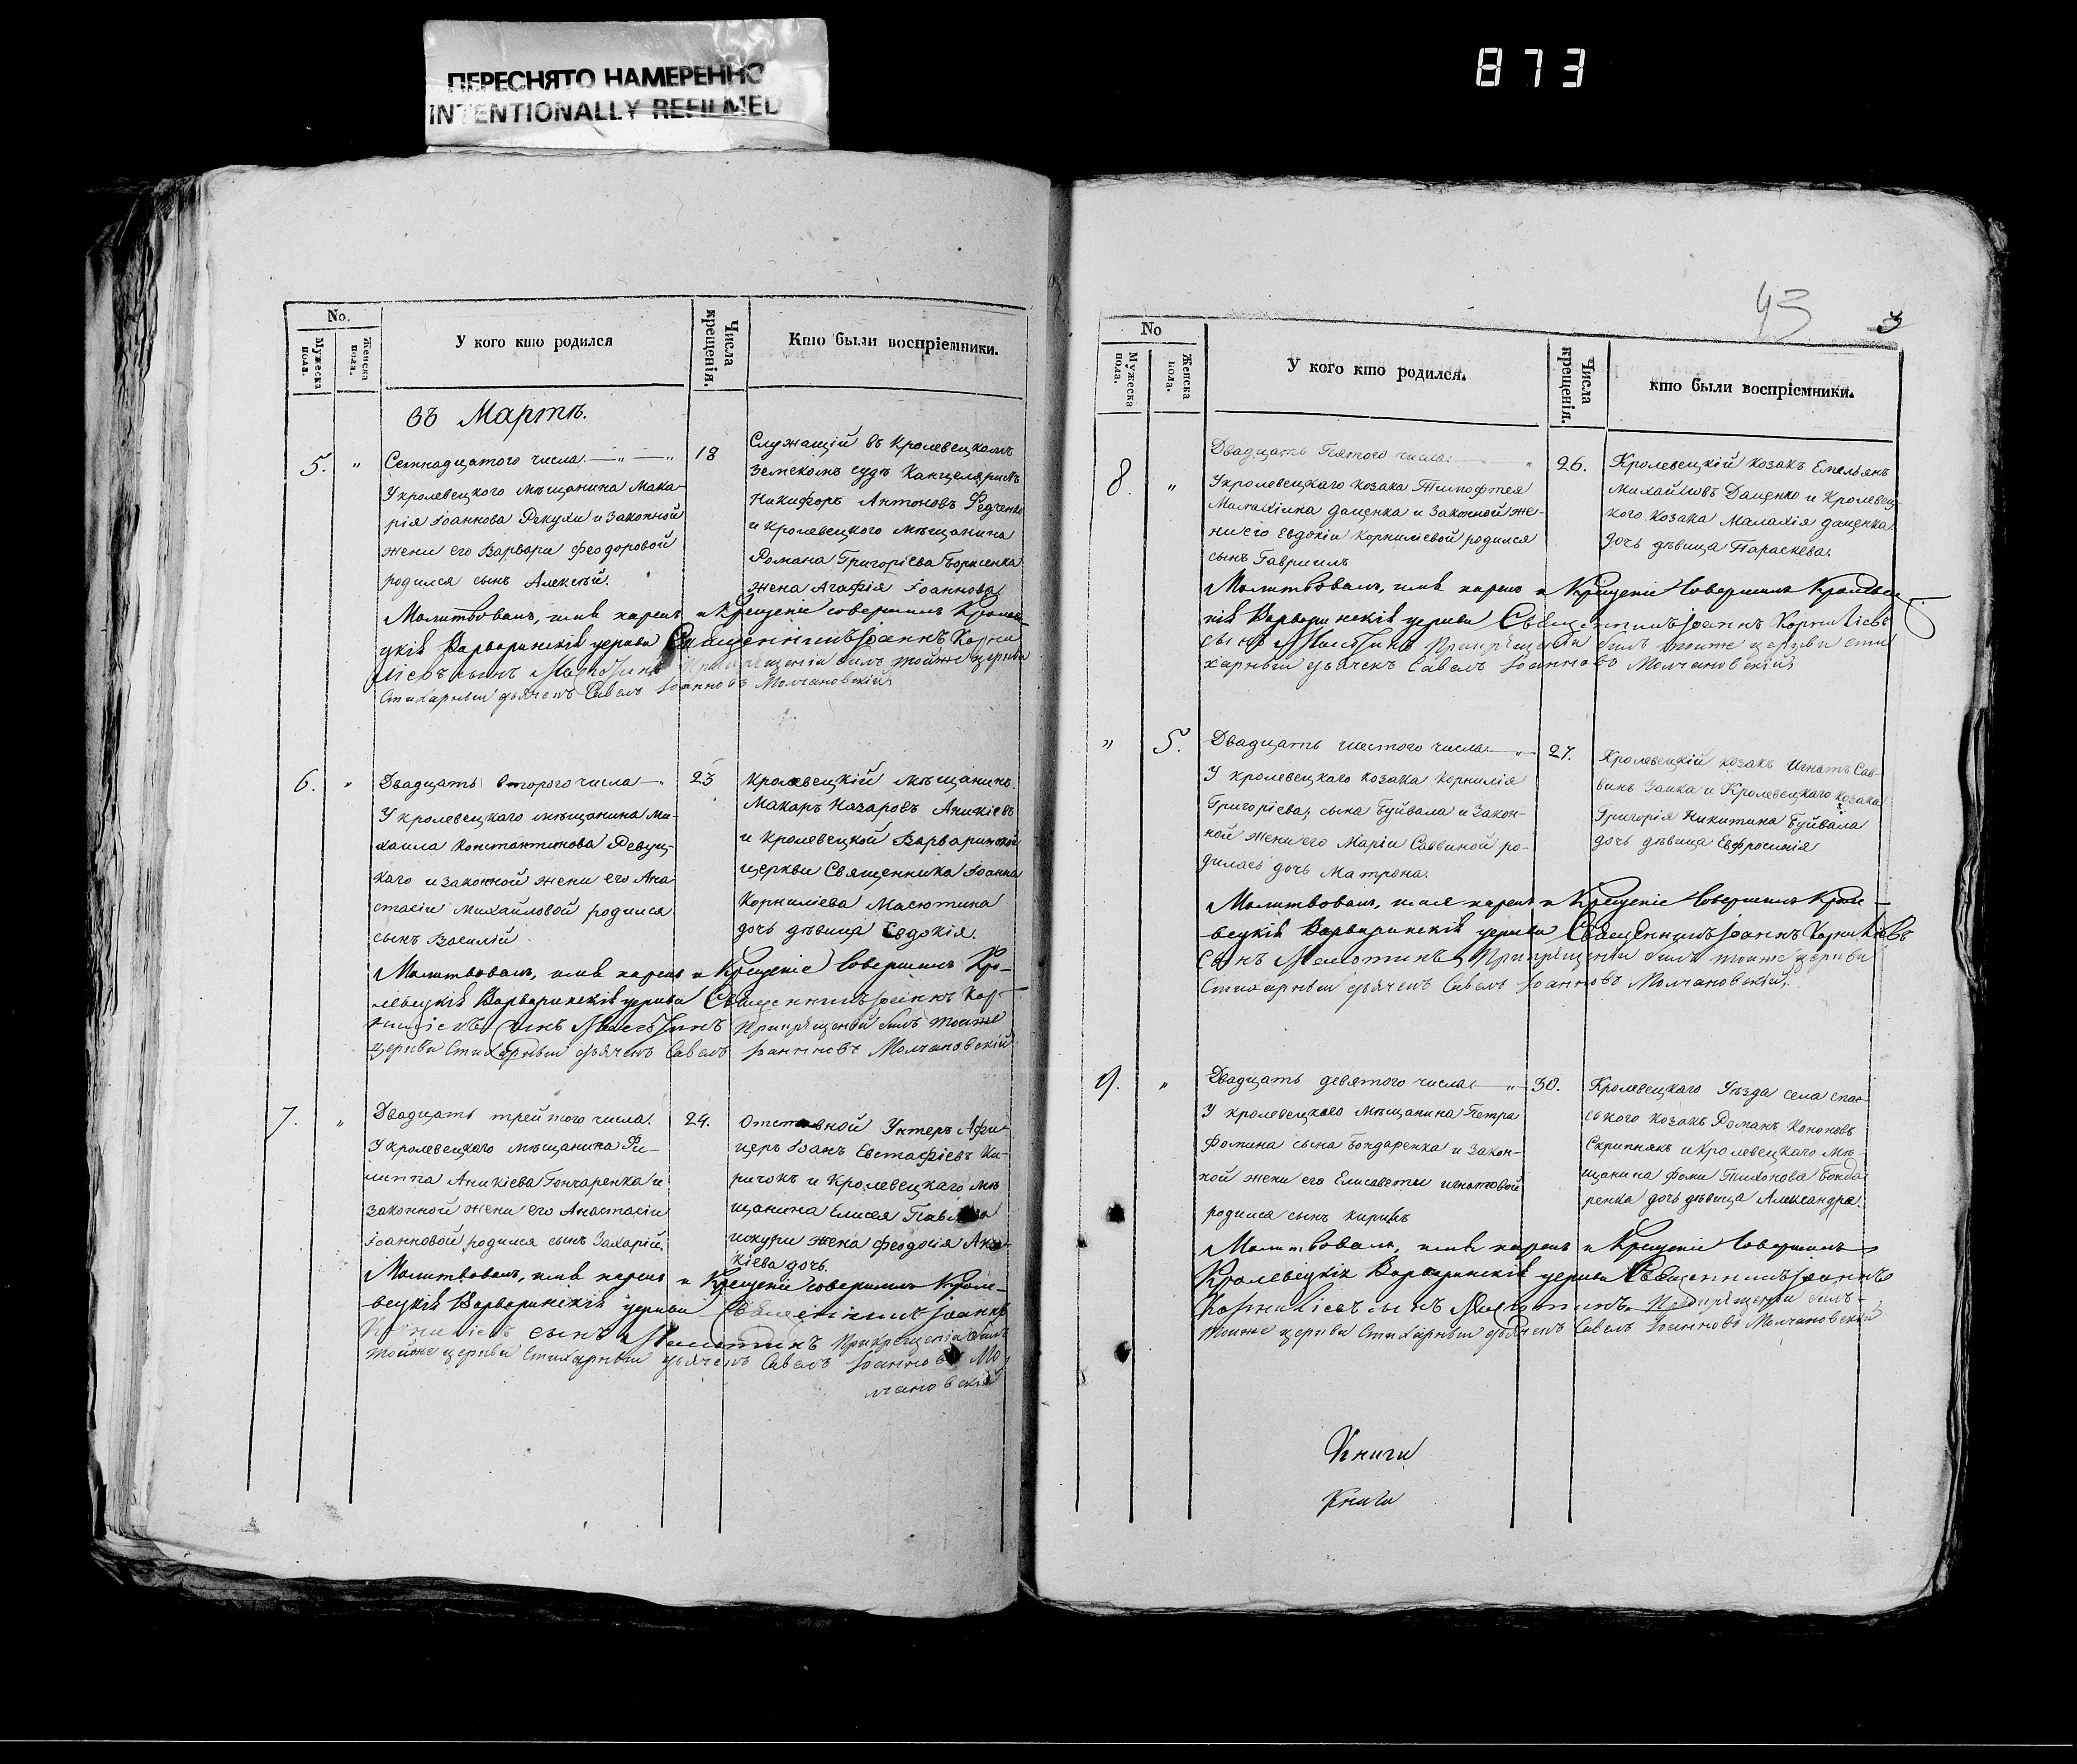 ПЕРЕСНЯТО НАМЕРЕННО
INTENTIONALLY REFILMED
873
No.
Мужеска пола.
Женска пола.
У кого кто родился
Числа крещенія.
Кто были воспріемники.
въ Мартѣ.
5. "
Семнадцатого числа.—"—"
У кролевецкого мѣщанина Мака-
рія Іоаннова Рекухи и законной
жени его Варвари Феодоровой
родился сынъ Алексѣй.
18
Служащій въ Кролевецкомъ
Земскомъ судѣ Канцеляристъ
Никифоръ Антоновъ Федченко
и Кролевецкого мѣщанина
Романа Григоріева Борисенка
жена Агафія Іоаннова
Молитвовалъ, имя нарекъ и Крещеніе совершилъ Кролеве-
цкія Варваринскія церкви Священникъ Іоаннъ Корни
ліевъ сынъ Масютинъ При крещеніи былъ тойже церкви
Стихарный дьячекъ Савелъ Іоанновъ Молчановскій
6. "
Двадцать второго числа—"
У кролевецкаго мѣщанина Ми-
хаила Константинова Ревуц-
каго и законной жени его Ана
стасіи Михайловой родился
сынъ Василій
23
Кролевецкій мѣщанинъ
Макаръ Назаровъ Аникіевъ
и Кролевецкой Варваринской
церкви Священника Іоанна
Корниліева Масютина
дочь дѣвица Евдокія.
Молитвовалъ, имя нарекъ и Крещеніе совершилъ Кро-
левецкія Варваринскія церкви Священникъ Іоаннъ Кор-
ниліевъ сынъ Масютинъ При крещеніи былъ тойже
церкви Стихарный дьячекъ Савелъ Іоанновъ Молчановскій
7. "
Двадцать трейтого числа.
У кролевецкого мѣщанина Фи-
липпа Аникіева Гончаренка и
законной жени его Анастасіи
Іоанновой родился сынъ Захарій.
24.
Отставной Унтеръ Афи-
церъ Іоанъ Евстафіевъ Ки-
ричокъ и Кролевецкаго мѣ
щанина Елисея
жена Феодосія Ани-
кіева дочь.
Молитвовалъ, имя нарекъ и Крещеніе совершилъ Кроле-
вецкія Варваринскія церкви Священникъ Іоаннъ
Корниліевъ сынъ Масютинъ При крещеніи былъ
тойже церкви Стихарный дьячекъ Савелъ Іоанновъ Мо
лчановскій
43
3
No
Мужеска пола.
Женска пола.
У кого кто родился.
Числа крещенія.
кто были воспріемники.
8. "
Двадцать Пятого числа.—" "
У кролевецкаго козака Тимофтея
Малахіина Даценка и Законной же-
ни его Евдокіи Корниліевой родился
сынъ Гавриилъ
26.
Кролевецкій козакъ Емельянъ
Михайловъ Даценко и Кролевец-
кого козака Малахія Даценка
дочь дѣвица Параскева.
Молитвовалъ, имя нарекъ и Крещеніе Совершилъ Кролевец
кія Варваринскія церкви Священникъ Іоаннъ Корниліевъ
сынъ Масютинъ При крещеніи былъ тойже церкви сти
харный дьячекъ Савелъ Іоанновъ Молчановскій
" 5.
Двадцать шестого числа—"
У кролевецкаго козака Корнилія
Григоріева, сына Буйвала и Закон-
ной жени его Маріи Саввиной ро-
дилась дочь Матрона.
27.
Кролевецкій козакъ Игнатъ Сав-
винъ Заика и Кролевецкаго козака
Григорія Никитина Буйвала
дочь дѣвица Евфросинія
Молитвовалъ, имя нарекъ и Крещеніе Совершилъ Кроле-
вецкія Варваринскія церкви Священникъ Іоаннъ Корниліевъ
Сынъ Масютинъ, При крещеніи былъ тойже церкви
Стихарный дьячекъ Савелъ Іоанновъ Молчановскій,
9. "
Двадцать девятого числа.—"
У кролевецкого мѣщанина Петра
Фомина сына Бондаренка и Закон-
ной жени его Елисаветы Игнатовой
родился сынъ Кирилъ
30.
Кролевецкаго Уѣзда села Спас-
ького козакъ Романъ Кононовъ
Скрипникъ и Кролевецкаго мѣ-
щанина Фоми Тихонова Бонда
ренка дочь дѣвица Александра.
Молитвовалъ, имя нарекъ и Крещеніе Совершилъ
Кролевецкія Варваринскія церкви Священникъ Іоаннъ
Корниліевъ сынъ Масютинъ. При крещеніи былъ-
тойже церкви Стихарный дьячекъ Савелъ Іоанновъ Молчановскій
Книги
Книги